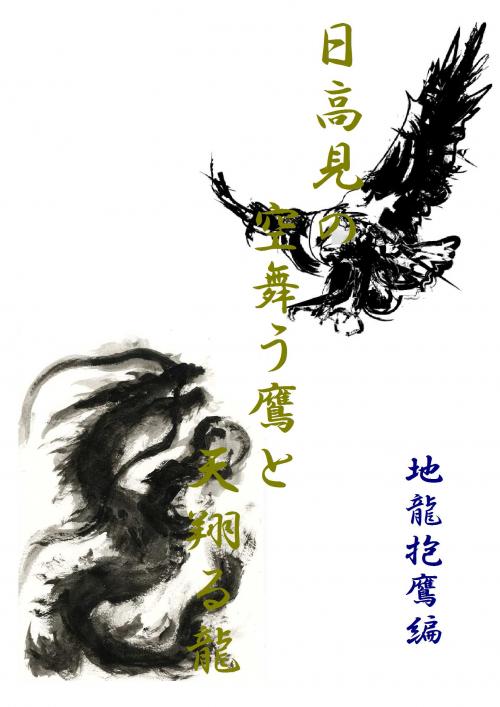 日高見の
空舞う鷹と
天翔る龍
地龍抱鷹編